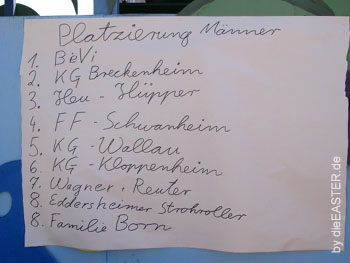 Platzierung Männer
1. BiVi
2. KG Breckenheim
3. Heu - Hüpper
4. FF - Schwanheim
5. KG - Wallau
6. KG - Kloppenheim
7. Wagner + Reuter
8. Eddersheimer Strohroller
8. Familie Born
by dieEASTER.de